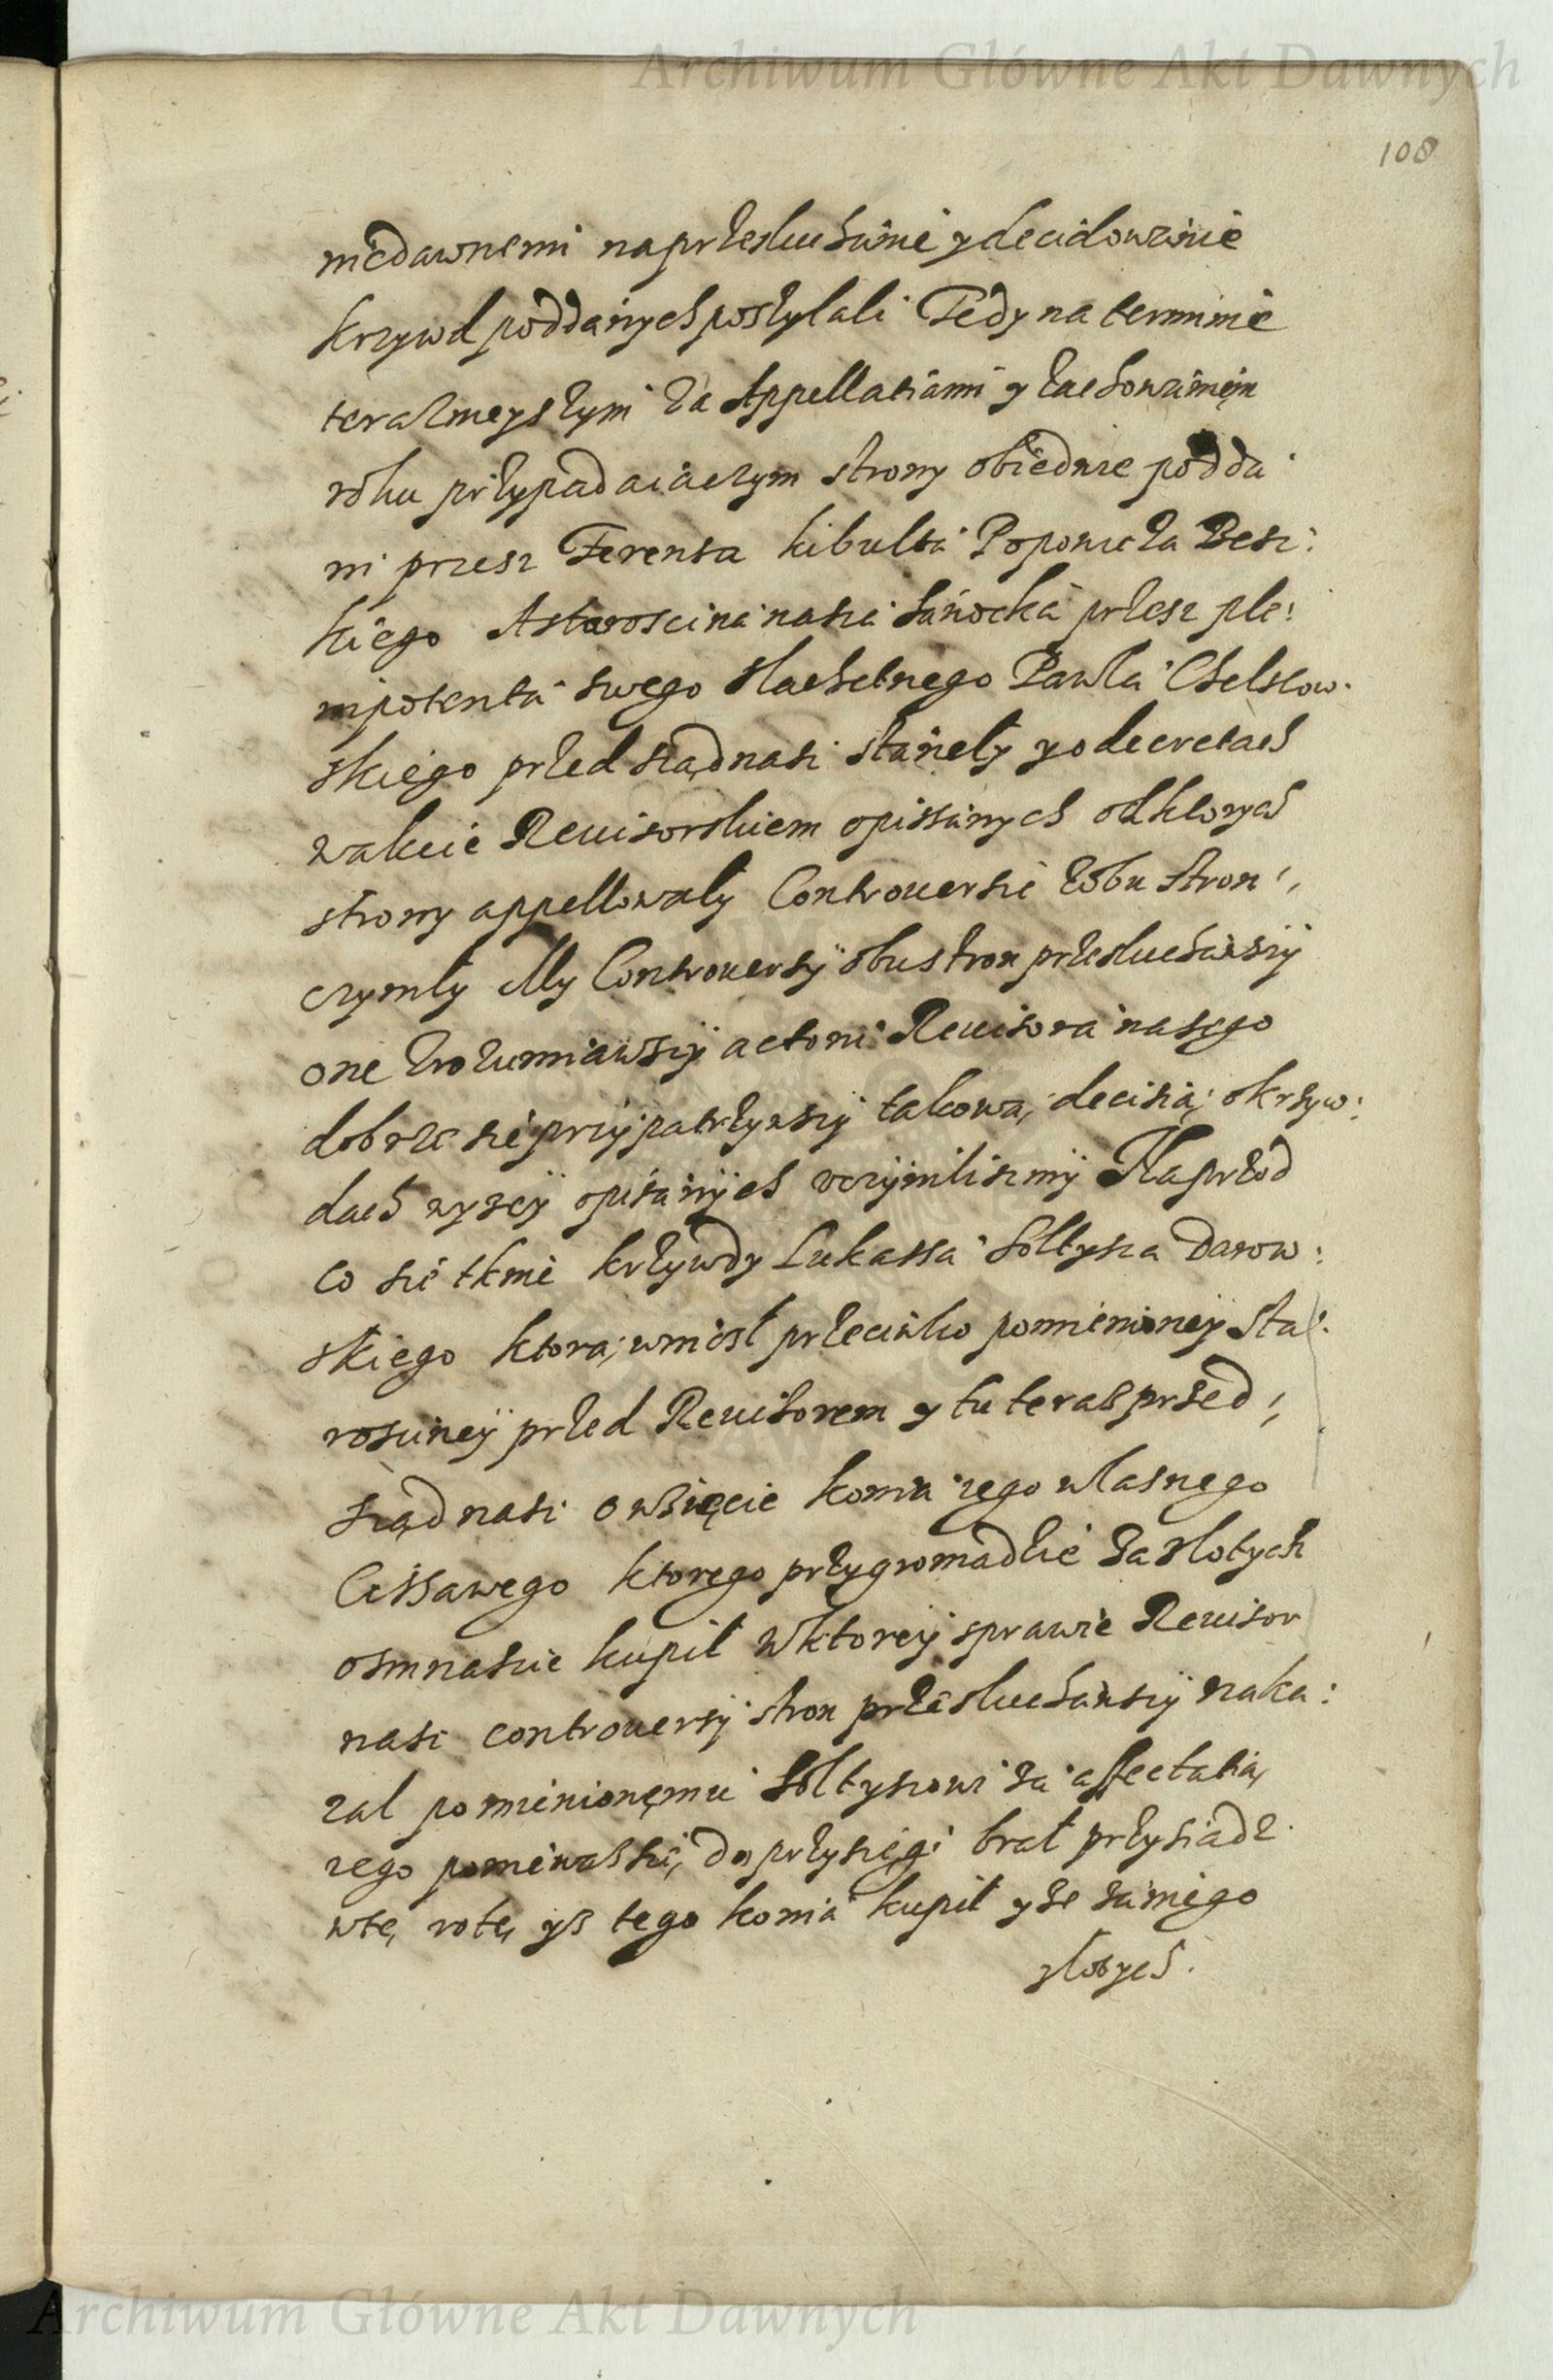 Archiwum Główne Akt Dawnych
108
niedawnemi na przesłuchanie y decidowanie
krzywd poddanych posyłali Tedy na terminie
teraznieyszym za Appellatiami y zachowaniem
roku przypadaiaczym strony obiedwie podda
ni przesz Ferensa kibulta Popowicza Besz:
kiego A starosscina nasza Sanocka przesz ple:
nipotenta swego slachetnego Pawla Chelstow.
skiego przed sząd nasz stanely y o decretach
w akcie Reuisorskiem opissanych od ktorych
strony appellowaly Controuersie z obu stron,
czynily My Controuersy obu stron przesluchawsy
one zrozumiawszy actom Reuisora nasego
dobrze sie przypatrzywszy takową decisią o krzyw:
dach wyzey opisanych uczynilismy Naprzod
Co sie tknie krzywdy Lukassa Soltysza Darow:
skiego ktorą wniosł przeciwko pomienioney Sta:
rosciney przed Reuisorem y tu teras przed,
sząd nasz o wzięcie konia iego własnego
Cissawego ktorego przy gromadzie za zlotych
osmnascie kupił W ktorey sprawie Reuisor
nasz controuersy stron przesluchawszy naka:
zal pomienionemu Soltyszowi za affectatią
iego poniewasz się do przysięgi brał przysiadz
w tę rotę ysz tego konia kupił y ze zaniego
zlotych.
Archiwum Główne Akt Dawnych